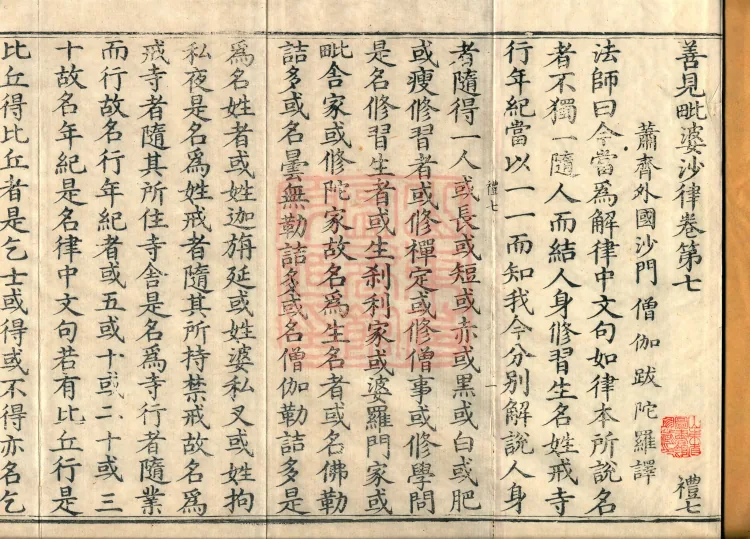 善見毗婆沙律卷第七
禮七
蕭齊外國沙門僧伽跋陀羅譯
法師曰今當為解律中文句如律本所說名
者不獨一隨人而結人身修習生名姓戒寺
行年紀當以一一而知我今分別解說人身
禮七
一
者隨得一人或長或短或赤或黑或白或肥
或瘦修習者或修禪定或修僧事或修學問
是名修習生者或生剎利家或婆羅門家或
毗舍家或修陀家故名為生名者或名佛勒
詰多或名曇無勒詰多或名僧伽勒詰多是
為名姓者或姓迦旃延或姓婆私叉或姓拘
私夜是名為姓戒者隨其所持禁戒故名為
戒寺者隨其所住寺舍是名為寺行者隨業
而行故名行年紀者或五或十或二十或三
十故名年紀是名律中文句若有比丘行是
比丘得比丘者是乞士或得或不得亦名乞